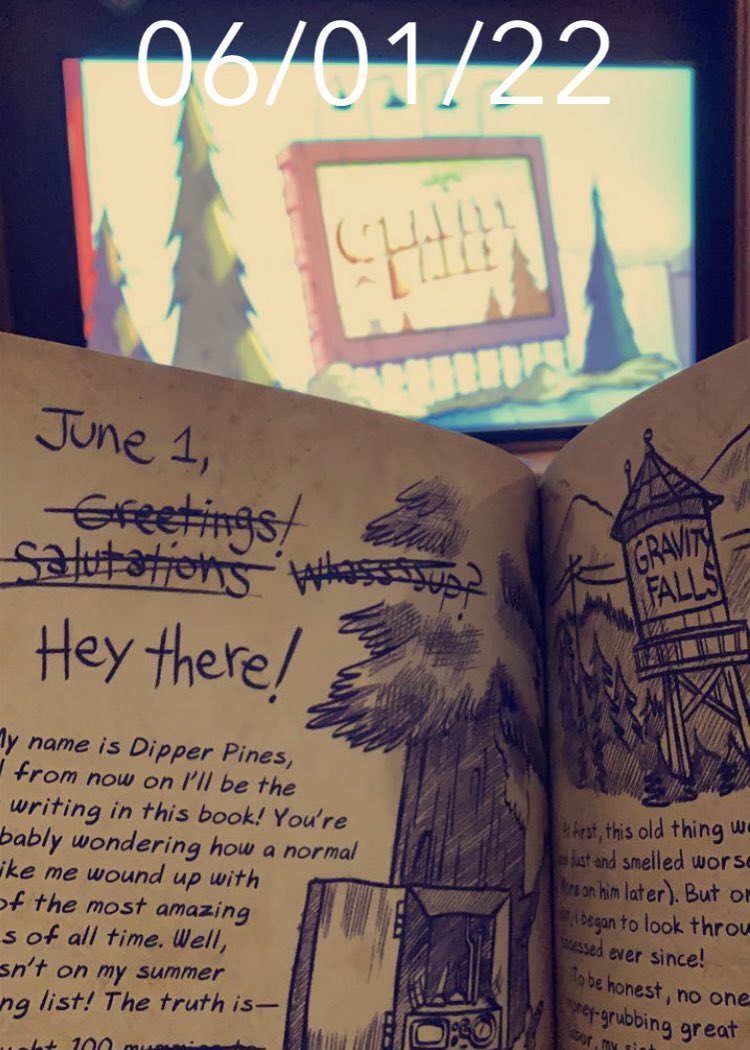 06/01/22
June 1,
Greetings!
Salutations Whasssssup?
Hey there!
My name is Dipper Pines,
from now on I'll be the
writing in this book! You're
bably wondering how a normal
ike me wound up with
of the most amazing
s of all time. Well,
sn't on my summer
ng list! The truth is—
100
GRAVITY
FALLS
At first, this old thing
dust and smelled worse
More on him later). But
I began to look throu
ssessed ever since!
To be honest, no one
money-grubbing great
my